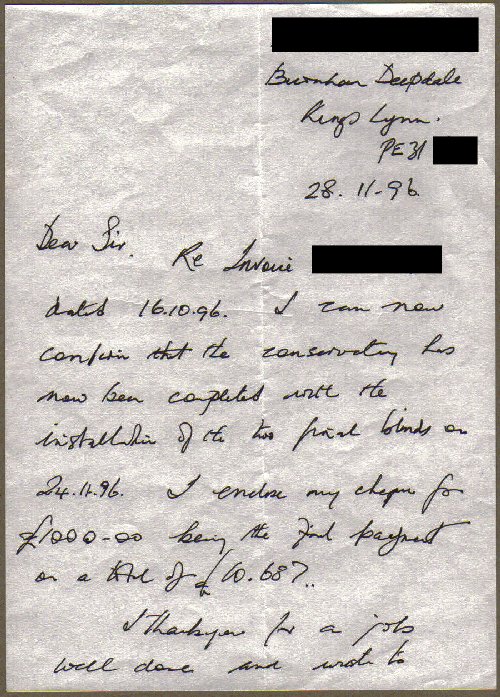 Burnham Deepdale
Kings Lynn.
PE31
28.11-96
Dear Sir.
Re Invoice
dated 16.10.96. I can now
confirm that the conservatory has
now been completed with the
installation of the two final blinds on
24.11.96. I enclose my cheque for
£1000-00 being the final payment
on a total of £10.687..
I thankyou for a job
well done and wish to